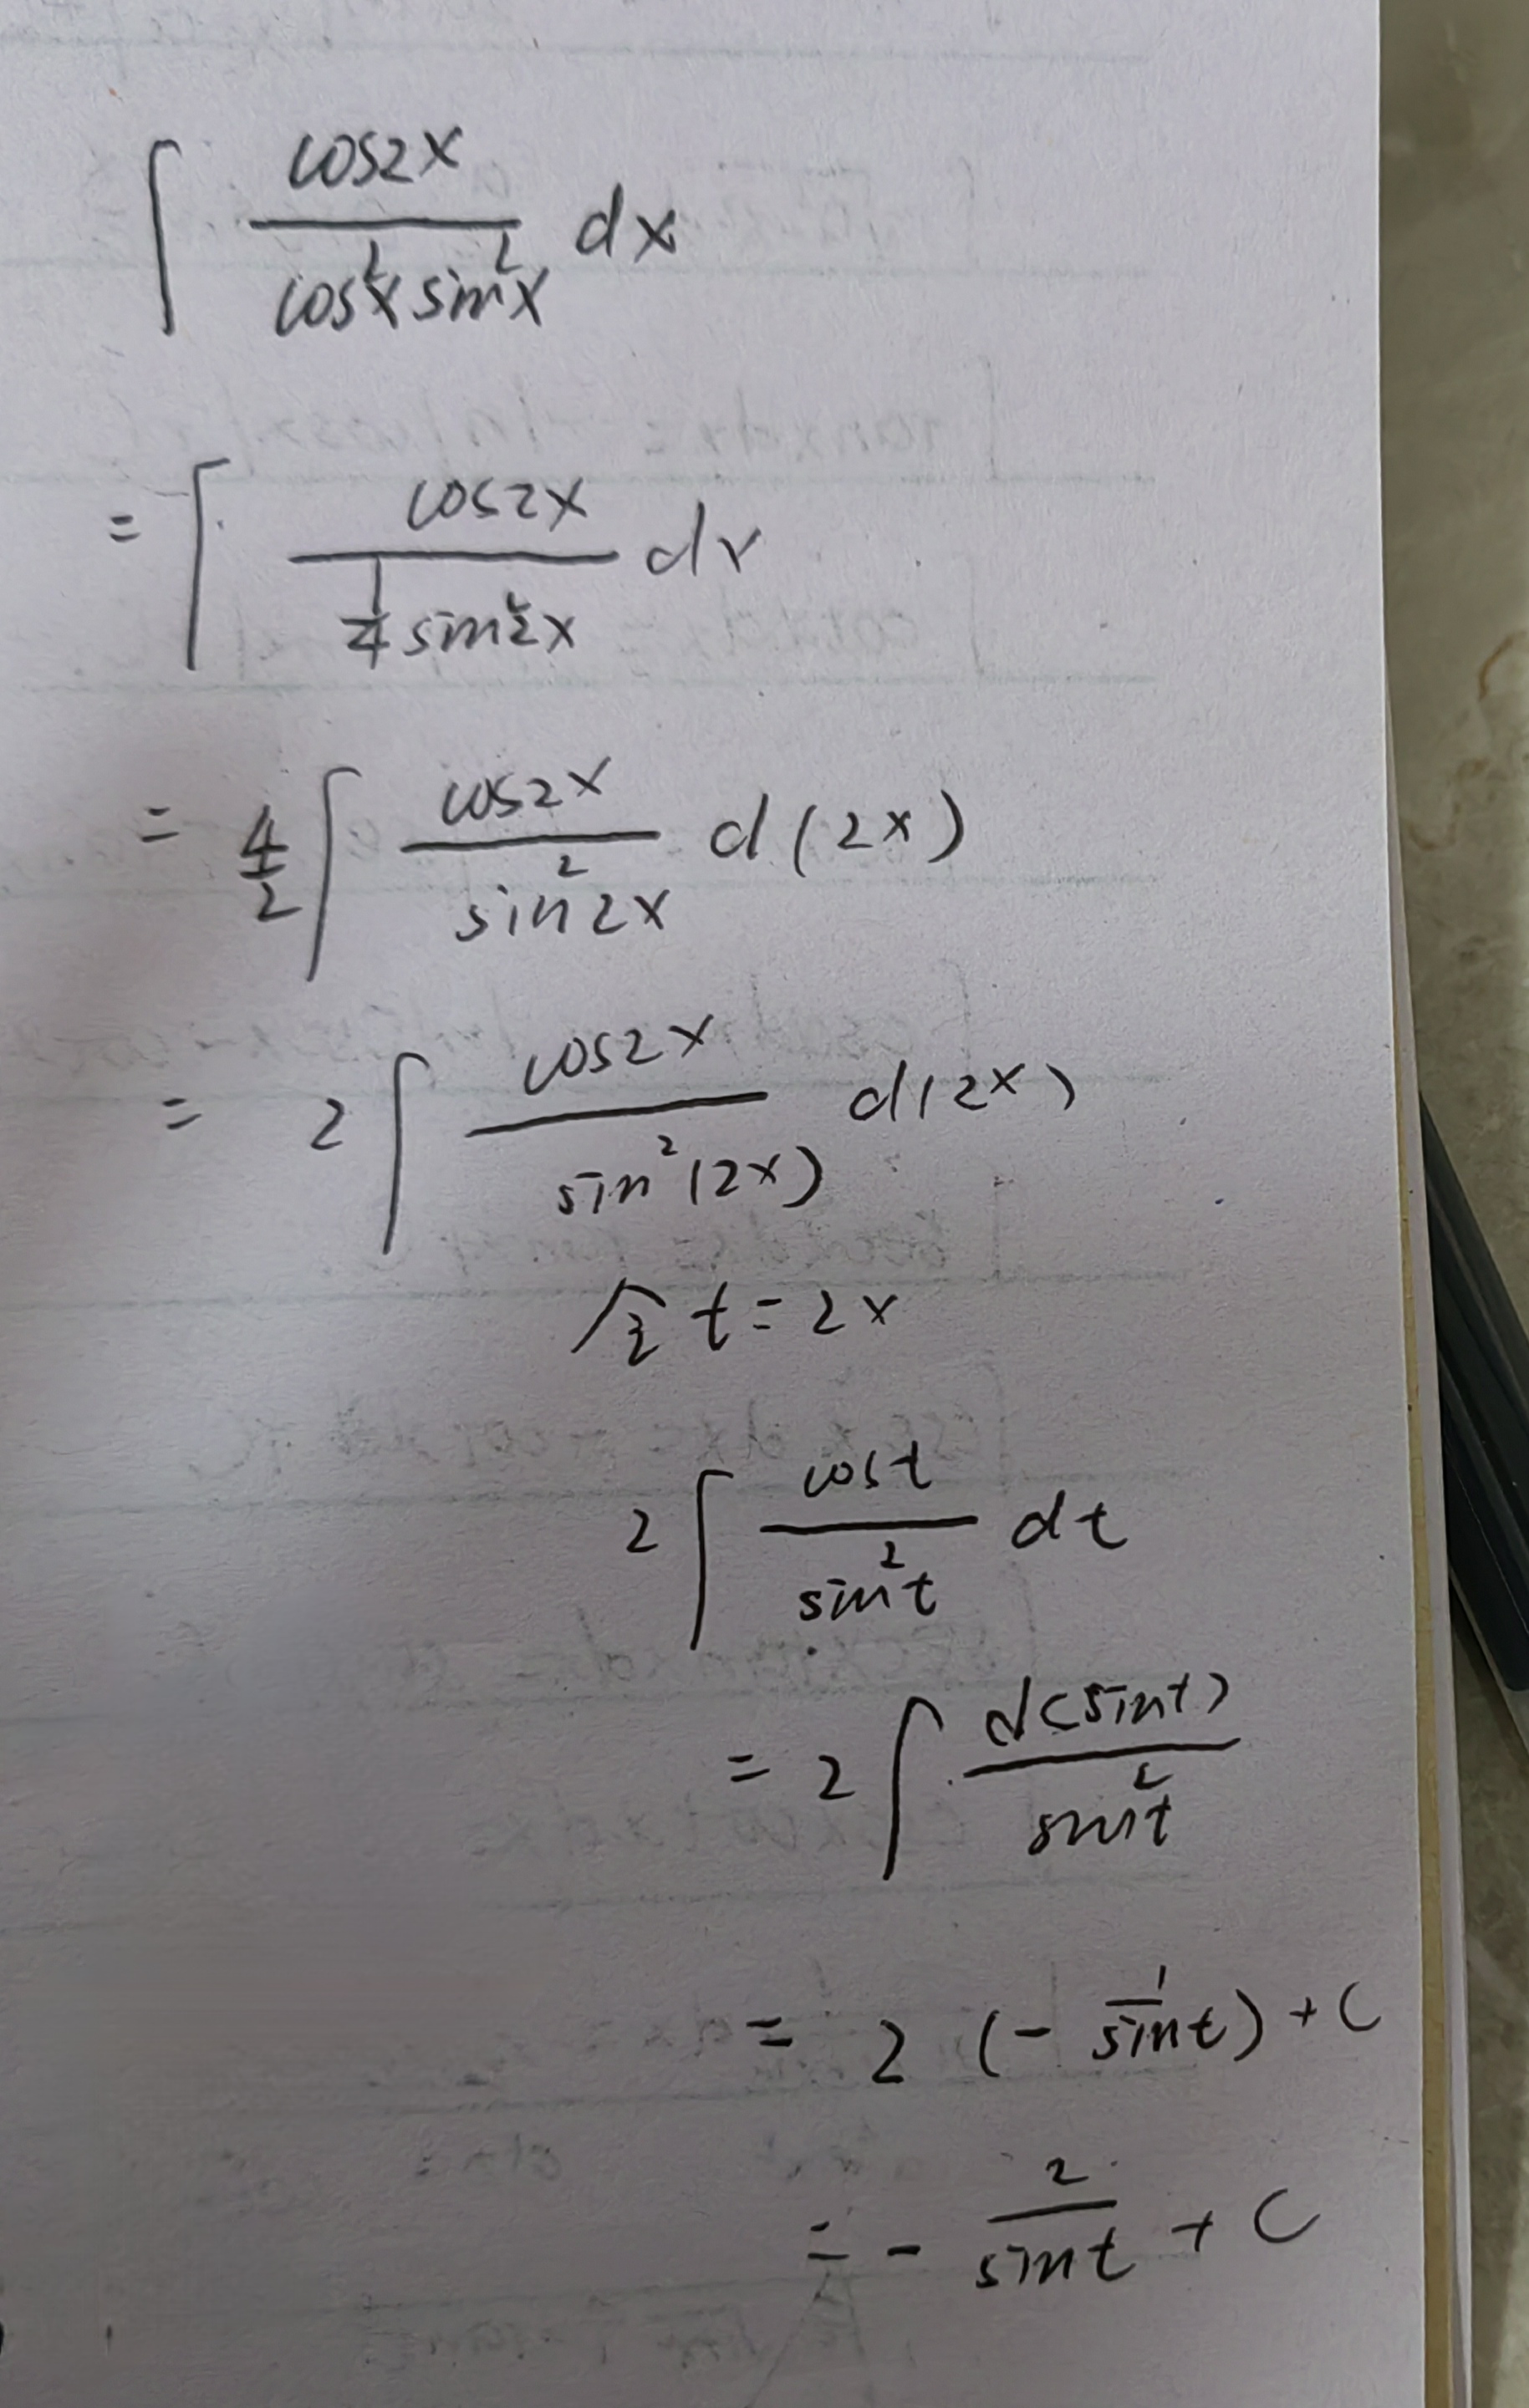 ∫ cos2x / cos²x sin²x dx
= ∫ cos2x / ¼ sin²2x dx
= 4/2 ∫ cos2x / sin²2x d(2x)
= 2 ∫ cos2x / sin²(2x) d(2x)
令 t = 2x
2 ∫ cost / sin²t dt
= 2 ∫ d(sint) / sin²t
= 2 (- 1/sint) + C
= - 2/sint + C